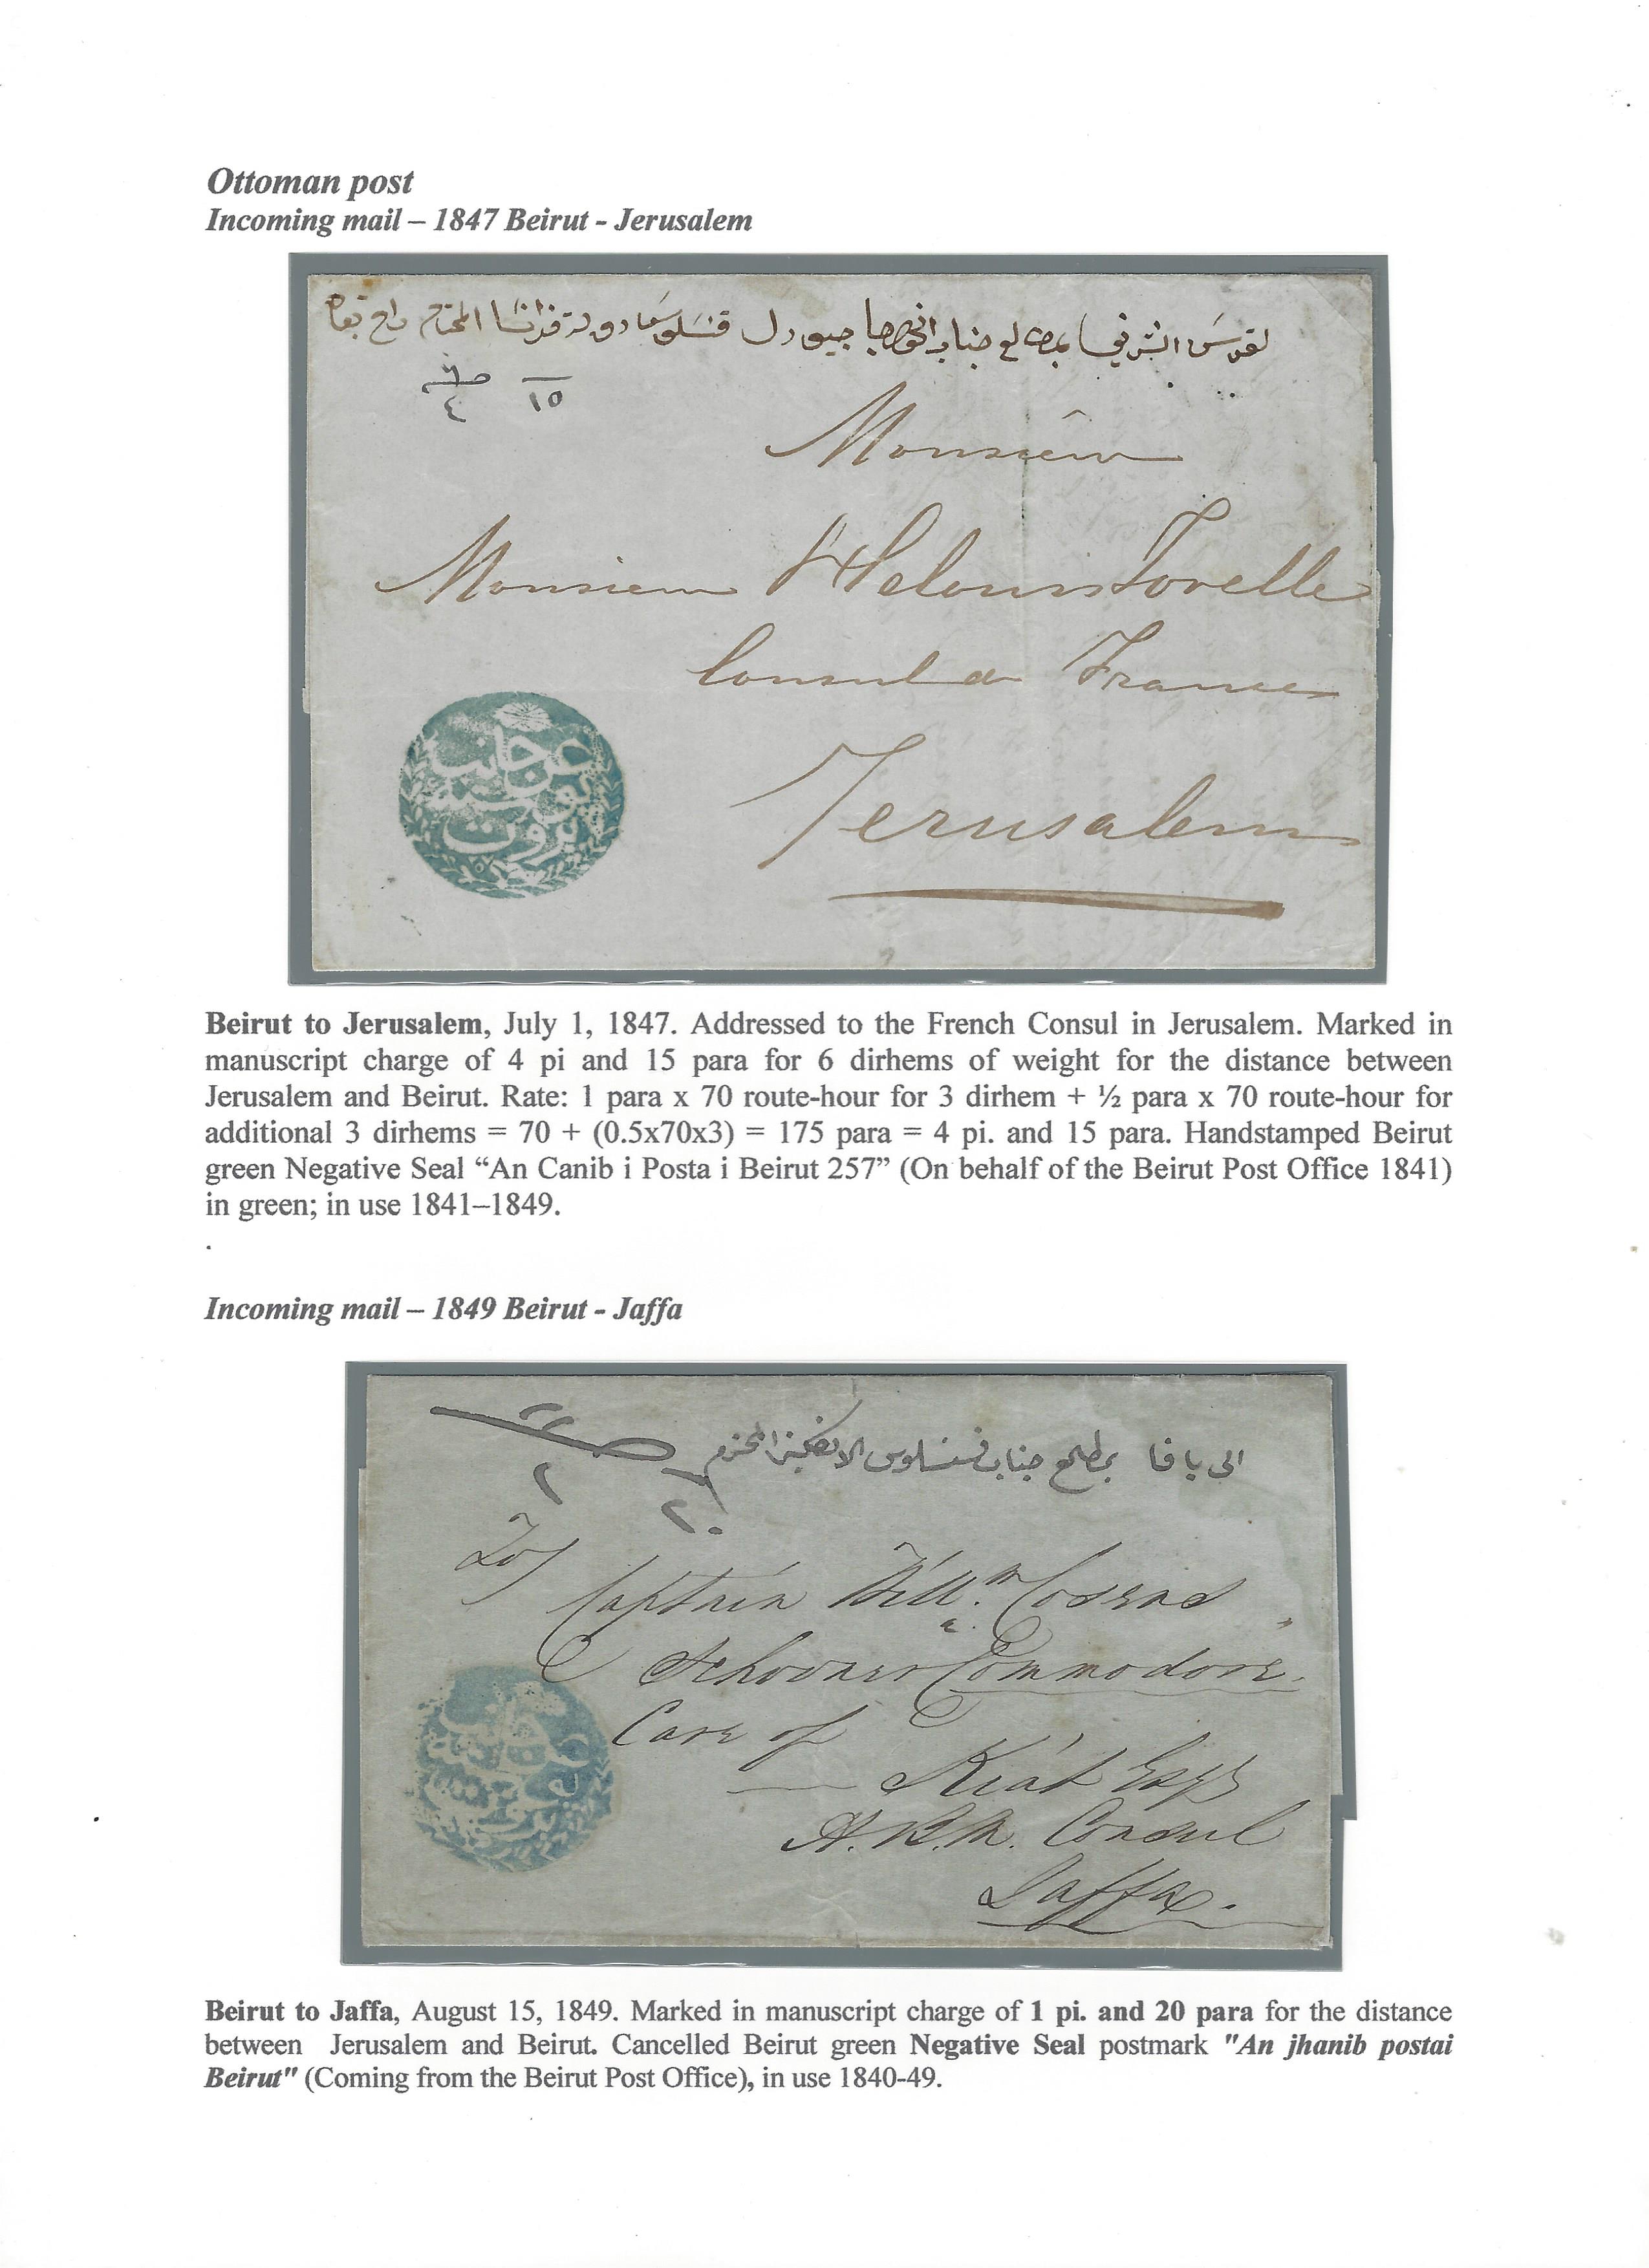 Ottoman post
Incoming mail – 1847 Beirut - Jerusalem
جناب الخواجا جيورل قنسلوس دولة فرانسا المحترم
٤ ١٥
Monsieur
Monsieur
Consul de France
Jerusalem
عن جانب
بوسته
بيروت
Beirut to Jerusalem, July 1, 1847. Addressed to the French Consul in Jerusalem. Marked in
manuscript charge of 4 pi and 15 para for 6 dirhems of weight for the distance between
Jerusalem and Beirut. Rate: 1 para x 70 route-hour for 3 dirhem + ½ para x 70 route-hour for
additional 3 dirhems = 70 + (0.5x70x3) = 175 para = 4 pi. and 15 para. Handstamped Beirut
green Negative Seal “An Canib i Posta i Beirut 257” (On behalf of the Beirut Post Office 1841)
in green; in use 1841–1849.
.
Incoming mail – 1849 Beirut - Jaffa
الى يافا بمطلع جناب قنسلوس الانكليز المحترم
٢٠
To
Captain Willm. Cosens
Schooner Commodore.
Care of
Kiat Esqr
H.B.M. Consul
Jaffa.
Beirut to Jaffa, August 15, 1849. Marked in manuscript charge of 1 pi. and 20 para for the distance
between Jerusalem and Beirut. Cancelled Beirut green Negative Seal postmark "An jhanib postai
Beirut" (Coming from the Beirut Post Office), in use 1840-49.